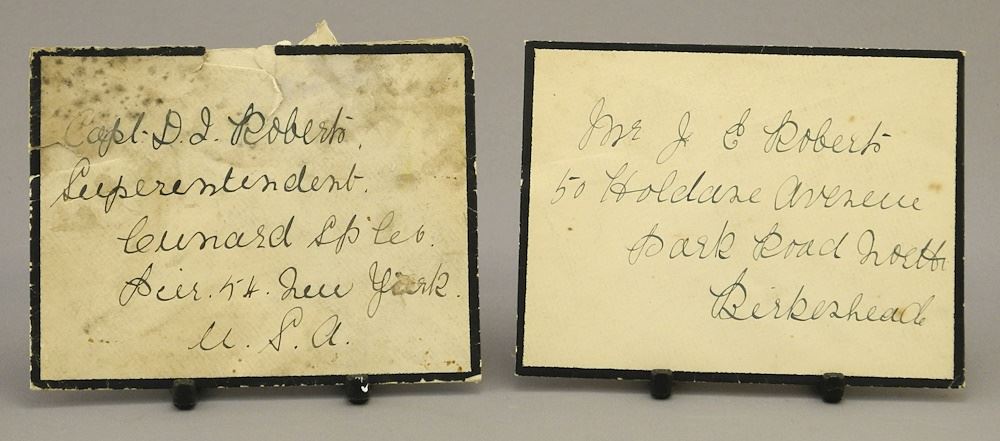 Capt. D. J. Roberts,
Superentendent.
Cunard SS Co.
Pier. 54. New York.
U. S. A.
Mr J E Roberts
50 Holdane Avenue
Park Road North
Birkenhead